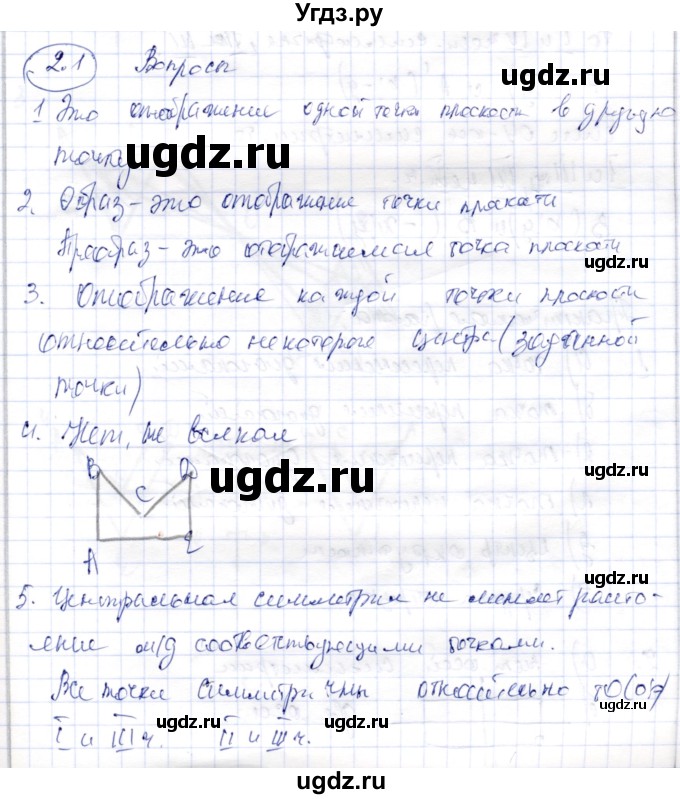 Угдз.ру
2.1 Вопросы
1 Это отображение одной точки плоскости в другую
точку
2. Образ – это отображение точки плоскости
Прообраз – это отображаемая точка плоскости
3. Отображение каждой точки плоскости
относительно некоторого центра (заданной
точки)
4. Нет, не всякая
B D
C
A E
5. Центральная симметрия не меняет расто-
яние м/д соответствующими точками.
Все точки симметричны относительно т О(0;
I и III ч. II и ч.
ugdz.ru
ugdz.ru
ugdz.ru
ugdz.ru
ugdz.ru
ugdz.ru
ugdz.ru
ugdz.ru
ugdz.ru
ugdz.ru
ugdz.ru
ugdz.ru